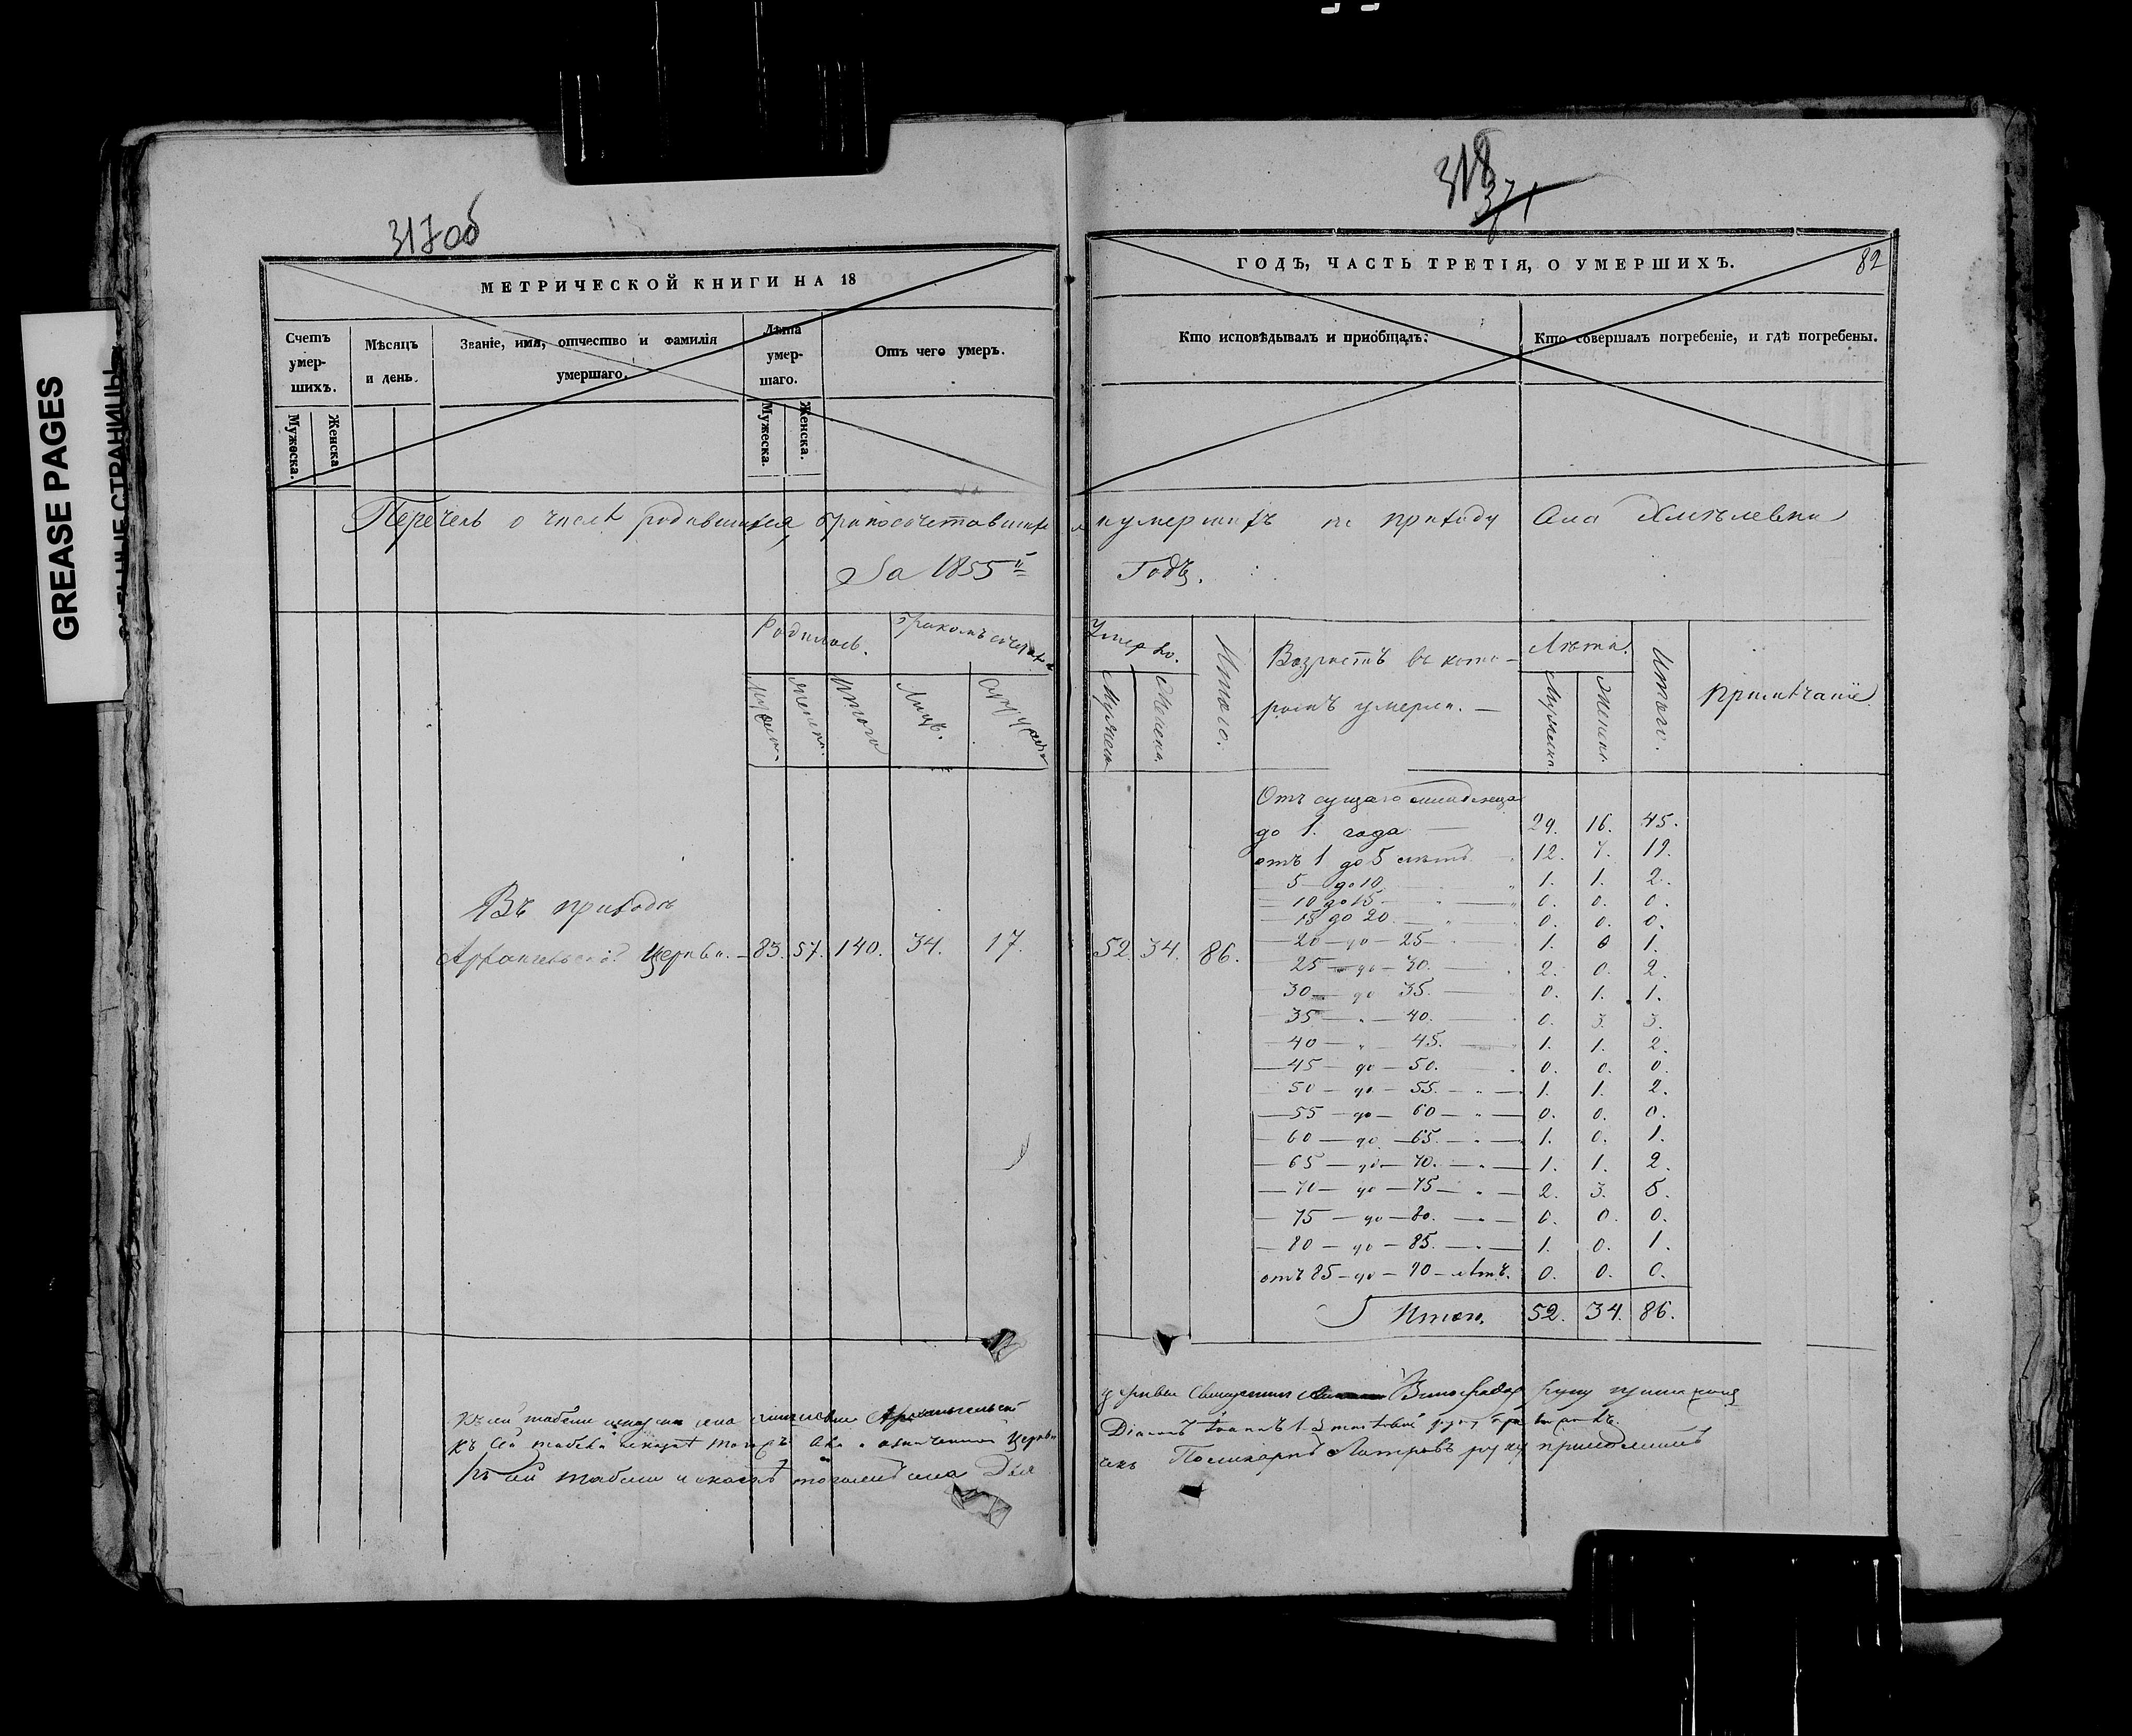 GREASE PAGES
317об
МЕТРИЧЕСКОЙ КНИГИ НА 18
Счетъ умер-шихъ.
Мѣсяцъ и день.
Званіе, имя, отчество и фамилія умершаго.
Лѣта умер-шаго.
Отъ чего умеръ.
Мужеска.
Женска
Мужеска.
Женска.
318
371
82
ГОДЪ, ЧАСТЬ ТРЕТІЯ, О УМЕРШИХЪ.
Кто исповѣдывалъ и пріобщалъ.
Кто совершалъ погребеніе, и гдѣ погребены.
Перечень о числѣ родившихся, бракосочетавших и умершихъ по приходу села Хмѣлевки
За 1855й Годъ.
Родилось.
Бракомъ сочет
Мужеска
Женска
Итого
Лицъ.
Умерло.
Мужеска
Женска
Итого.
Возрастъ въ кото-
ромъ умерли.
Лѣта.
Мужеска
Женска
Итого.
Примѣчаніе
Въ приходѣ
Архангельской Церкви. 83. 57. 140. 34. 17. 52. 34. 86.
Отъ сущаго младенца
до 1. года 29. 16. 45.
отъ 1 до 5 лѣтъ 12. 7. 19.
5 до 10 1. 1. 2.
10 до 15 0. 0. 0.
15 до 20 0. 0. 0.
20 до 25 1. 0 1.
25 до 30. 2. 0. 2.
30 до 35. 0. 1. 1.
35 " 40. 0. 3. 3.
40 " 45. 1. 1. 2.
45 до 50. 0. 0. 0.
50 до 55. 1. 1. 2.
55 до 60 0. 0. 0.
60 до 65. 1. 0. 1.
65 до 70. 1. 1. 2.
70 до 75 2. 3. 5.
75 до 80. 0. 0. 0.
80 до 85. 1. 0. 1.
отъ 85 до 90 лѣтъ. 0. 0. 0.
Итого. 52. 34. 86.
Къ сей табели Архангельской церкви Священник Виноградов руку приложилъ
Къ сей табели означенной Церкви Діаконъ Іоаннъ руку приложилъ
Къ сей табели села Дьячекъ Поликарпъ руку приложилъ